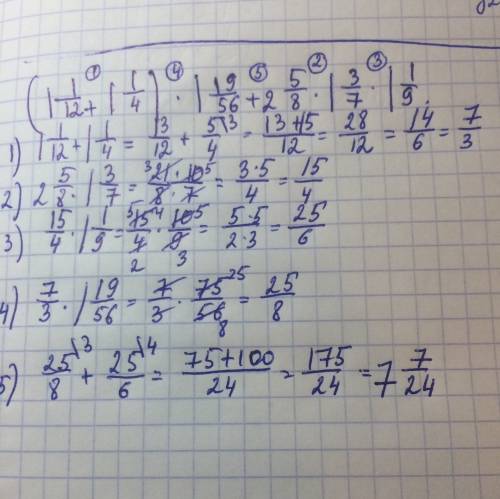 ① ④ ⑤ ② ③
(1 1/12 + 1 1/4) · 1 19/56 + 2 5/8 · 1 3/7 · 1 1/9.
1) 1 1/12 + 1 1/4 = 13/12 + 5\3/4 = 13+15/12 = 28/12 = 14/6 = 7/3
2) 2 5/8 · 1 3/7 = 3 21·10 5/8·7 = 3·5/4 = 15/4
3) 15/4 · 1 1/9 = 5 15/4 2 · 10 5/9 3 = 5·5/2·3 = 25/6
4) 7/3 · 1 19/56 = 7/3 · 75 25/56 8 = 25/8
5) 25\3/8 + 25\4/6 = 75+100/24 = 175/24 = 7 7/24